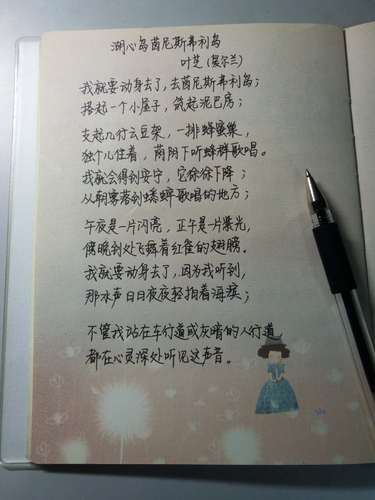 湖心岛茵尼斯弗利岛
叶芝(爱尔兰)
我就要动身去了,去茵尼斯弗利岛;
搭起一个小屋子,筑起泥巴房;
支起几行云豆架,一排蜂蜜巢,
独个儿住着,荫阴下听蜂群歌唱。
我就会得到安宁,它徐徐下降;
从朝雾落到蟋蟀歌唱的地方;
午夜是一片闪亮,正午是一片紫光,
傍晚到处飞舞着红雀的翅膀。
我就要动身去了,因为我听到,
那水声日日夜夜轻拍着海滨;
不管我站在车行道或灰暗的人行道
都在心灵深处听见这声音。